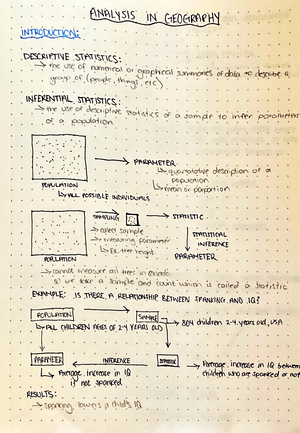 ANALYSIS IN GEOGRAPHY
INTRODUCTION:
DESCRIPTIVE STATISTICS:
→ the use of numerical or graphical summaries of data to describe a
group of (people, things, etc)
INFERENTIAL STATISTICS:
→ the use of descriptive statistics of a sample to infer parameters
of a population
→ PARAMETER
↳ quantitative description of a
population
↳ mean or proportion
POPULATION
↳ ALL POSSIBLE INDIVIDUALS
SAMPLING → STATISTIC
↳ collect sample
↳ measuring parameter
↳ Ex. tree height
STATISTICAL
INFERENCE
PARAMETER
POPULATION
→ cannot measure all trees in
so we take a sample and count which is called a statistic
EXAMPLE: IS THERE A RELATIONSHIP BETWEEN SPANKING AND IQ?
POPULATION → SAMPLE
↳ ALL CHILDREN AGES OF 2-4 YEARS OLD
→ 804 children 2-4 years old, USA
PARAMETER ← INFERENCE STATISTIC
→ Average increase in IQ between
children who are spanked or not
↳ Average increase in IQ
if not spanked
RESULTS:
→ spanking lowers a child's IQ